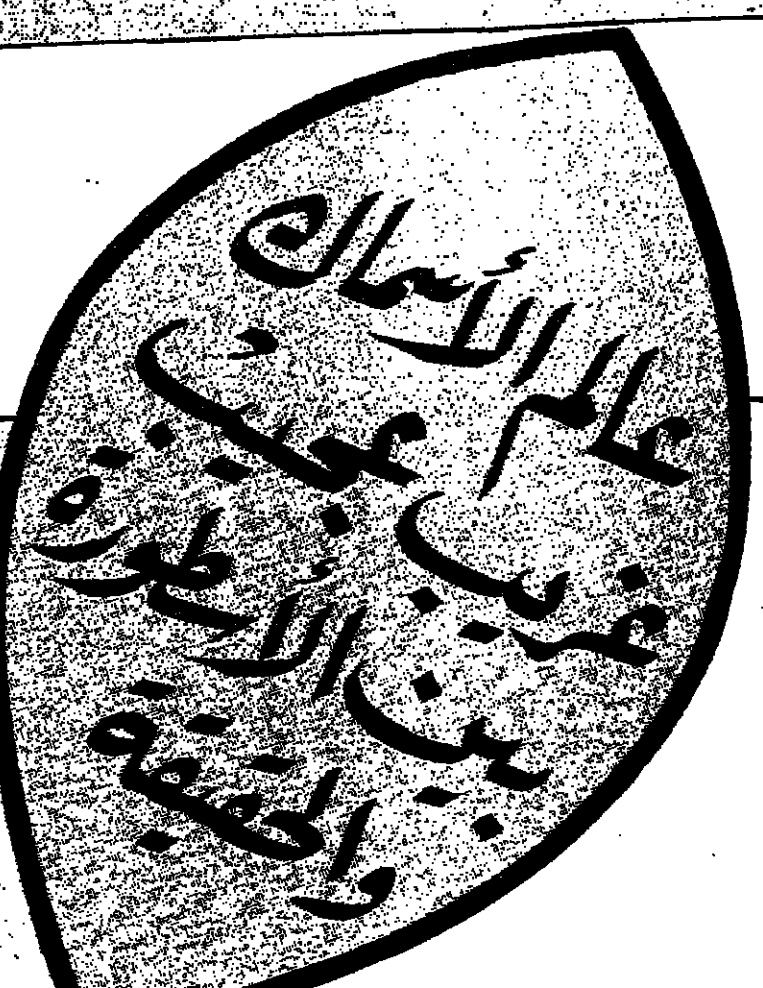 عالم الأسماك
غريب عجيب
بين الأسطورة
والحقيقة